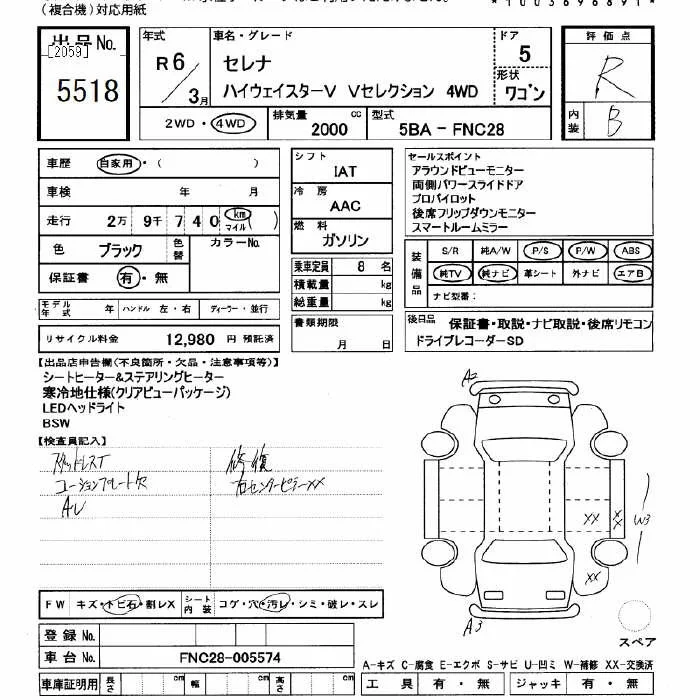 (複合機)対応用紙
*1003696891*
出品No.
[2059]
5518
年式
R6
3月
車名・グレード
セレナ
ハイウェイスターV Vセレクション 4WD
ドア
5
形状
ワゴン
評価点
R
内装
B
2WD・4WD
排気量
2000
cc
型式
5BA-FNC28
車歴
自家用・( )
車検
年 月
走行
2万 9千 7 4 0 km マイル
色
ブラック
色替
カラーNo.
保証書
有・無
モデル年式
年
ハンドル 左・右
ディーラー・並行
リサイクル料金
12,980 円 預託済
シフト
IAT
冷房
AAC
燃料
ガソリン
乗車定員
8 名
積載量
kg
総重量
kg
書類期限
月 日
セールスポイント
アラウンドビューモニター
両側パワースライドドア
プロパイロット
後席フリップダウンモニター
スマートルームミラー
装備品
S/R 純A/W P/S P/W ABS
純TV 純ナビ 革シート 外ナビ エアB
ナビ型番:
後日品
保証書・取説・ナビ取説・後席リモコン
ドライブレコーダーSD
【出品店申告欄(不良箇所・欠品・注意事項等)】
シートヒーター&ステアリングヒーター
寒冷地仕様(クリアビューパッケージ)
LEDヘッドライト
BSW
【検査員記入】
スタッドレスT
コーションプレート欠
AU
修復
右センターピラーXX
A2
XX
XX
W3
XX
A3
スペア
FW
キズ・トビ石・割レX
シート内装
コゲ・穴・汚レ・シミ・破レ・スレ
登録No.
車台No.
FNC28-005574
車庫証明用
長さ cm 幅 cm 高さ cm
A-キズ C-腐食 E-エクボ S-サビ U-凹ミ W-補修 XX-交換済
工具 有・無 ジャッキ 有・無